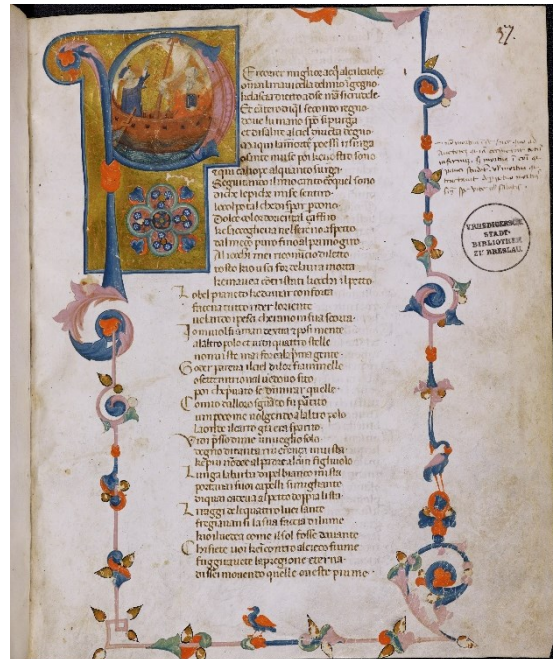 37
Er correr miglior acq̃ alça le vele
omai la navicella del mio ingegno
che lascia dietro a se mar si crudele
Et cantero di quel secondo regno
dove lumano spirito si purga
et di salire al ciel diventa degno
Ma qui la morta poesi resurga
o sante muse poi che vostro sono
e qui caliope alquanto surga
Seguitando il mio canto con quel sono
di che le piche misere sentiro
lo colpo tal che disperar perdono
Dolce color doriental çaffiro
che saccoglieva nel sereno aspetto
del meço puro fino al primo giro
Alli occhi miei ricomincio diletto
tosto chio usci for de laura morta
che mavea contristati li occhi il petto
Lo bel pianeto che damar conforta
faceva tutto rider loriente
velando i pesci cherano in sua scorta
Io mi volsi a man destra et posi mente
a laltro polo et vidi quattro stelle
non viste mai for cala prima gente
Goder pareva il ciel di lor fiammelle
o settentrional vedovo sito
poi che privato se di mirar quelle
Comio dalloro sguardo fu partito
un poco me volgendo a laltro polo
la onde il carro gia era sparito
Vidi presso di me un veglio solo
degno di tanta reverença in vista
che piu non de al padre alcun figliuolo
Lunga la barba et di pel bianco mista
portava suoi capelli simigliante
di quai cadeva al petto doppia lista
Li raggi de li quattro luci sante
fregiavan si la sua faccia di lume
chio il vedea come il sol fosse davante
Chi siete voi che contro al cieco fiume
fuggito avete la pregione eterna
dissel movendo quelle oneste piume
VRHEDIGERSCHE
STADT-
BIBLIOTHEK
ZU BRESLAU